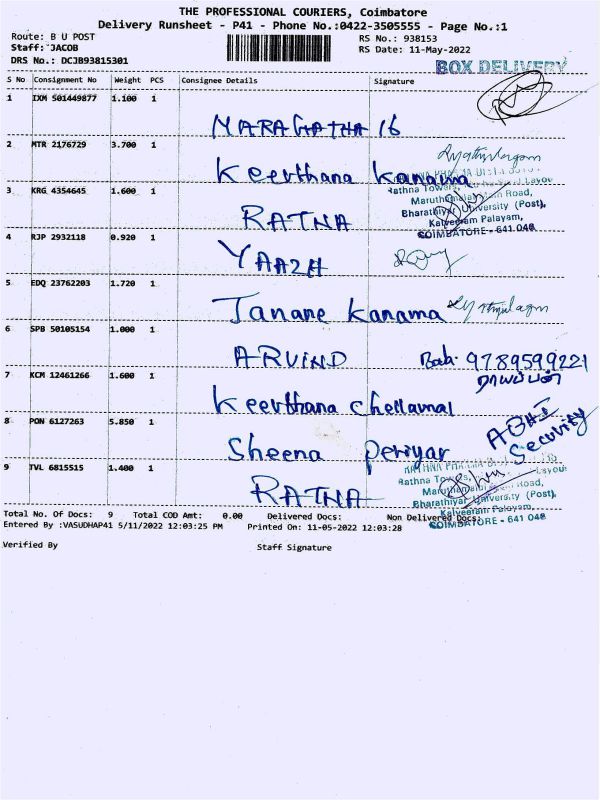 THE PROFESSIONAL COURIERS, Coimbatore
Delivery Runsheet - P41 - Phone No.:0422-3505555 - Page No.:1
Route: B U POST
RS No.: 938153
Staff: JACOB
RS Date: 11-May-2022
DRS No.: DCJB93815301
BOX DELIVERY
S No Consignment No Weight PCS Consignee Details Signature
1 IXM 501449877 1.100 1
MARAGATHA 16
2 MTR 2176729 3.700 1
Keerthana Kanama
3 KRG 4354645 1.600 1
Rathna Towers,
Maruthamalai Main Road,
Bharathiyar University (Post),
Kalveeram Palayam,
COIMBATORE - 641 046
RATNA
4 RJP 2932118 0.920 1
YAAZH
5 EDQ 23762203 1.720 1
Janane Kanama
6 SPB 50105154 1.000 1
ARVIND
9789599221
7 KCM 12461266 1.600 1
ராயப்பன்
Keerthana chellamal
8 PON 6127263 5.850 1
Security
Sheena Periyar
9 TVL 6815515 1.400 1
Rathna Towers,
Maruthamalai Main Road,
Bharathiyar University (Post),
Kalveeram Palayam,
COIMBATORE - 641 046
RATNA
Total No. Of Docs: 9 Total COD Amt: 0.00 Delivered Docs: Non Delivered Docs:
Entered By :VASUDHAP41 5/11/2022 12:03:25 PM Printed On: 11-05-2022 12:03:28
Verified By
Staff Signature